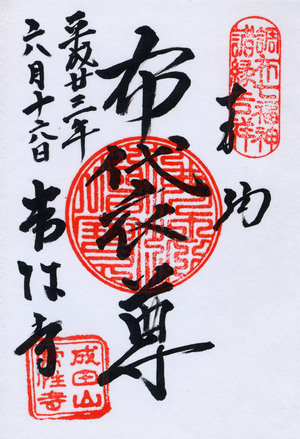 調布七福神
諸縁吉祥
奉拝
布袋尊
平成廿三年
六月十六日
常性寺
成田山
常性寺